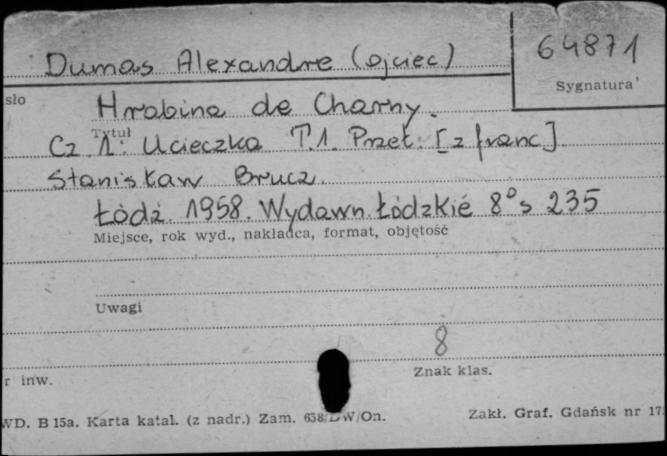 Dumas Alexandre (ojciec)
64871
Sygnatura
sło
Hrabina de Charny.
Tytuł
Cz. 1: Ucieczka T.1. Przeł. [z franc]
Stanisław Brucz.
Łódź 1958. Wydawn. Łódzkie 8° s 235
Miejsce, rok wyd., nakładca, format, objętość
Uwagi
8
r inw.
Znak klas.
WD. B 15a. Karta katal. (z nadr.) Zam. 658/DW/On.
Zakł. Graf. Gdańsk nr 17